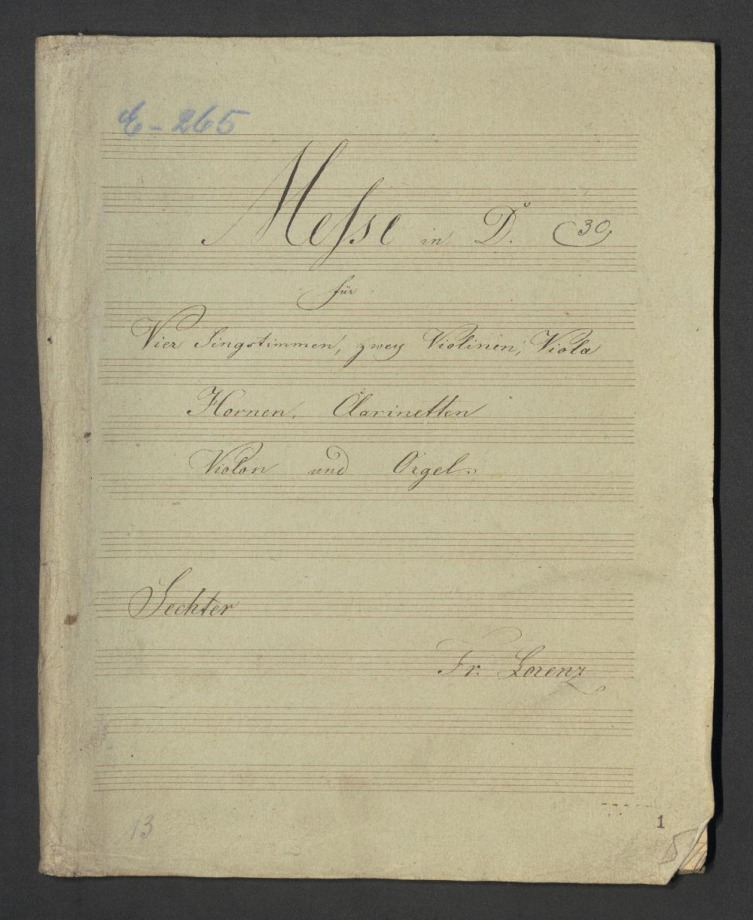 E-265
Messe in D. 30
für
Vier Singstimmen, zwey Violinen, Viola
Hornen, Clarinetten
Violon und Orgel.
Sechter
Fr. Lorenz
13
1